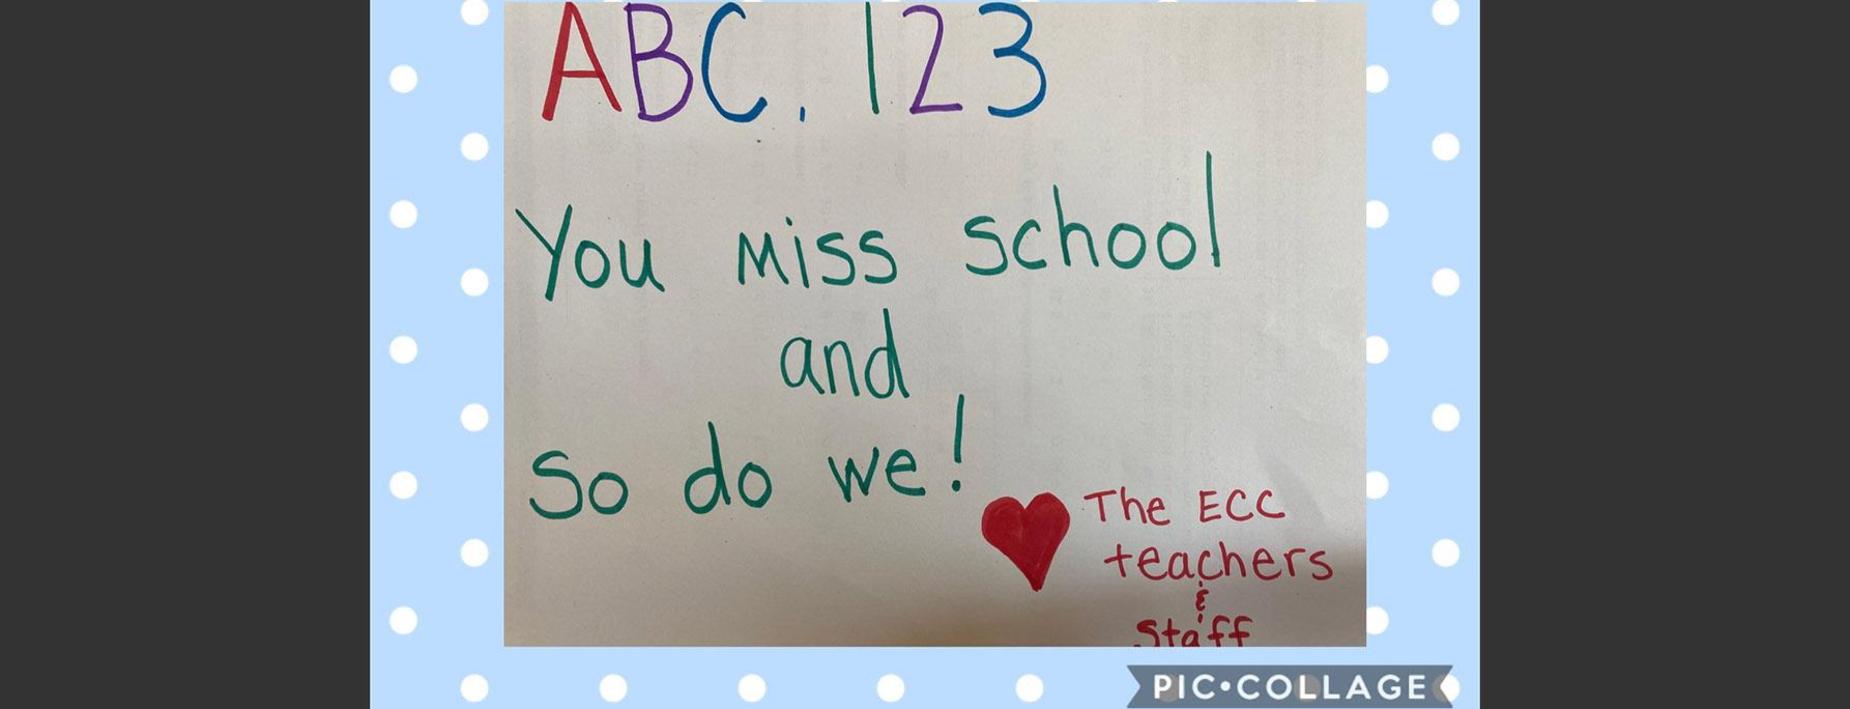 ABC, 123
You miss school
and
So do we!
The ECC
teachers
&
Staff
PIC•COLLAGE